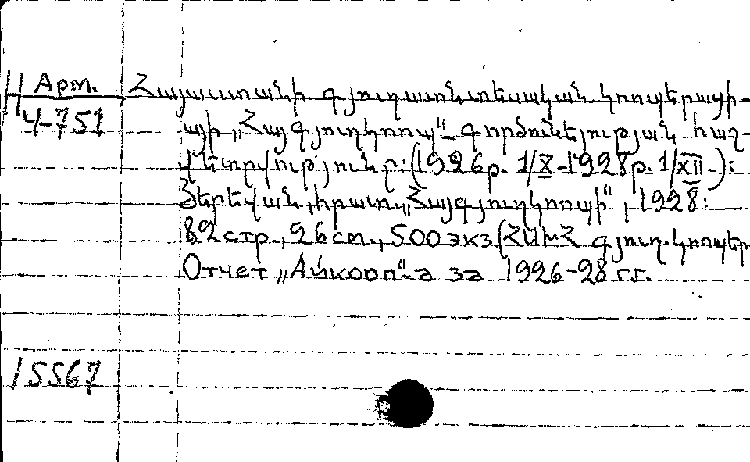 Арт. Հայաստանի գյուղատնտեսական կոոպերացի-
4-751 այի „Հայգյուղկոոպ“-ի գործունեության հաշ-
վետվությունը: (1926թ. 1/X-1928թ. 1/XII.):
Յերեվան, հրատ. „Հայգյուղկոոպի“, 1928:
82 стр., 26 см., 500 экз. (ՀՍԽՀ գյուղ. կոոպեր
Отчет „Айкооп“-а за 1926-28 г.г.
15567